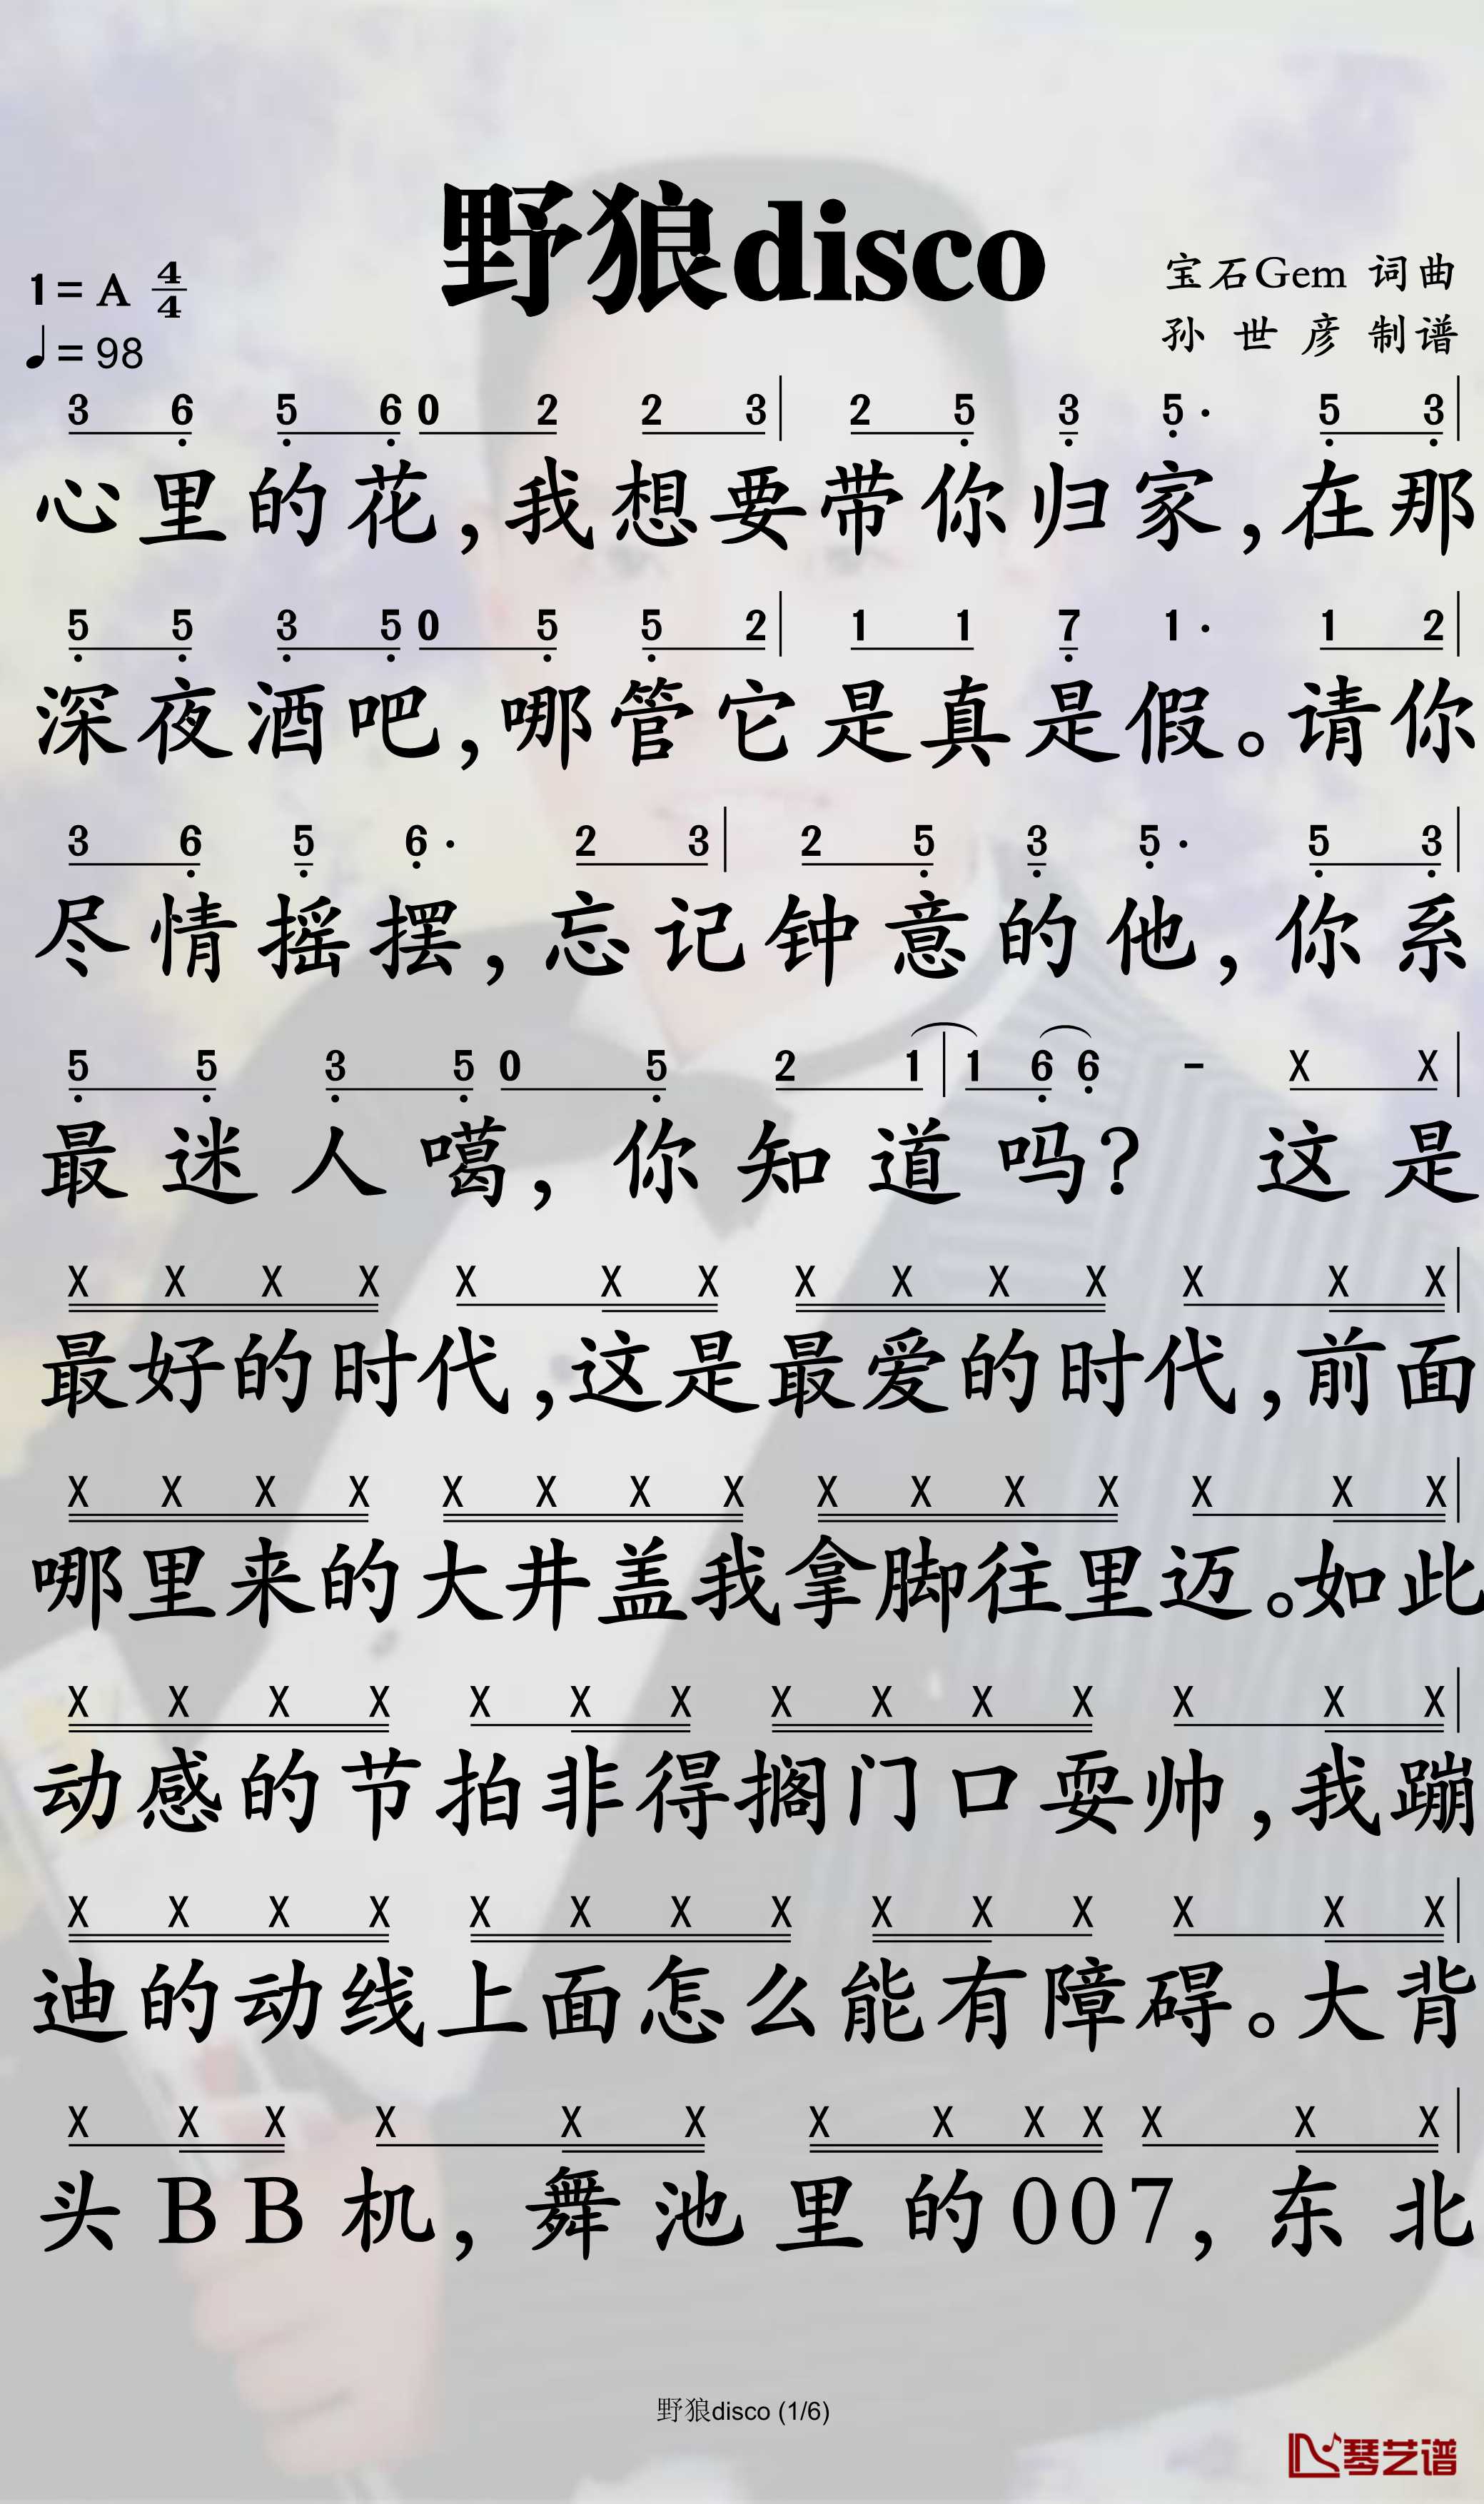 野狼disco
1=A 4/4
♩=98
宝石Gem 词曲
孙世彦制谱
3 6 5 6 0 2 2 3 | 2 5 3 5· 5 3 |
心里的花,我想要带你归家,在那
5 5 3 5 0 5 5 2 | 1 1 7 1· 1 2 |
深夜酒吧,哪管它是真是假。请你
3 6 5 6· 2 3 | 2 5 3 5· 5 3 |
尽情摇摆,忘记钟意的他,你系
5 5 3 5 0 5 2 1 | 1 6 6 - X X |
最迷人噶,你知道吗? 这是
X X X X X X X X X X X X X X |
最好的时代,这是最爱的时代,前面
X X X X X X X X X X X X X X X |
哪里来的大井盖我拿脚往里迈。如此
X X X X X X X X X X X X X X |
动感的节拍非得搁门口耍帅,我蹦
X X X X X X X X X X X X X X |
迪的动线上面怎么能有障碍。大背
X X X X X X X X X X X X X |
头BB机,舞池里的007,东北
野狼disco (1/6)
琴艺谱